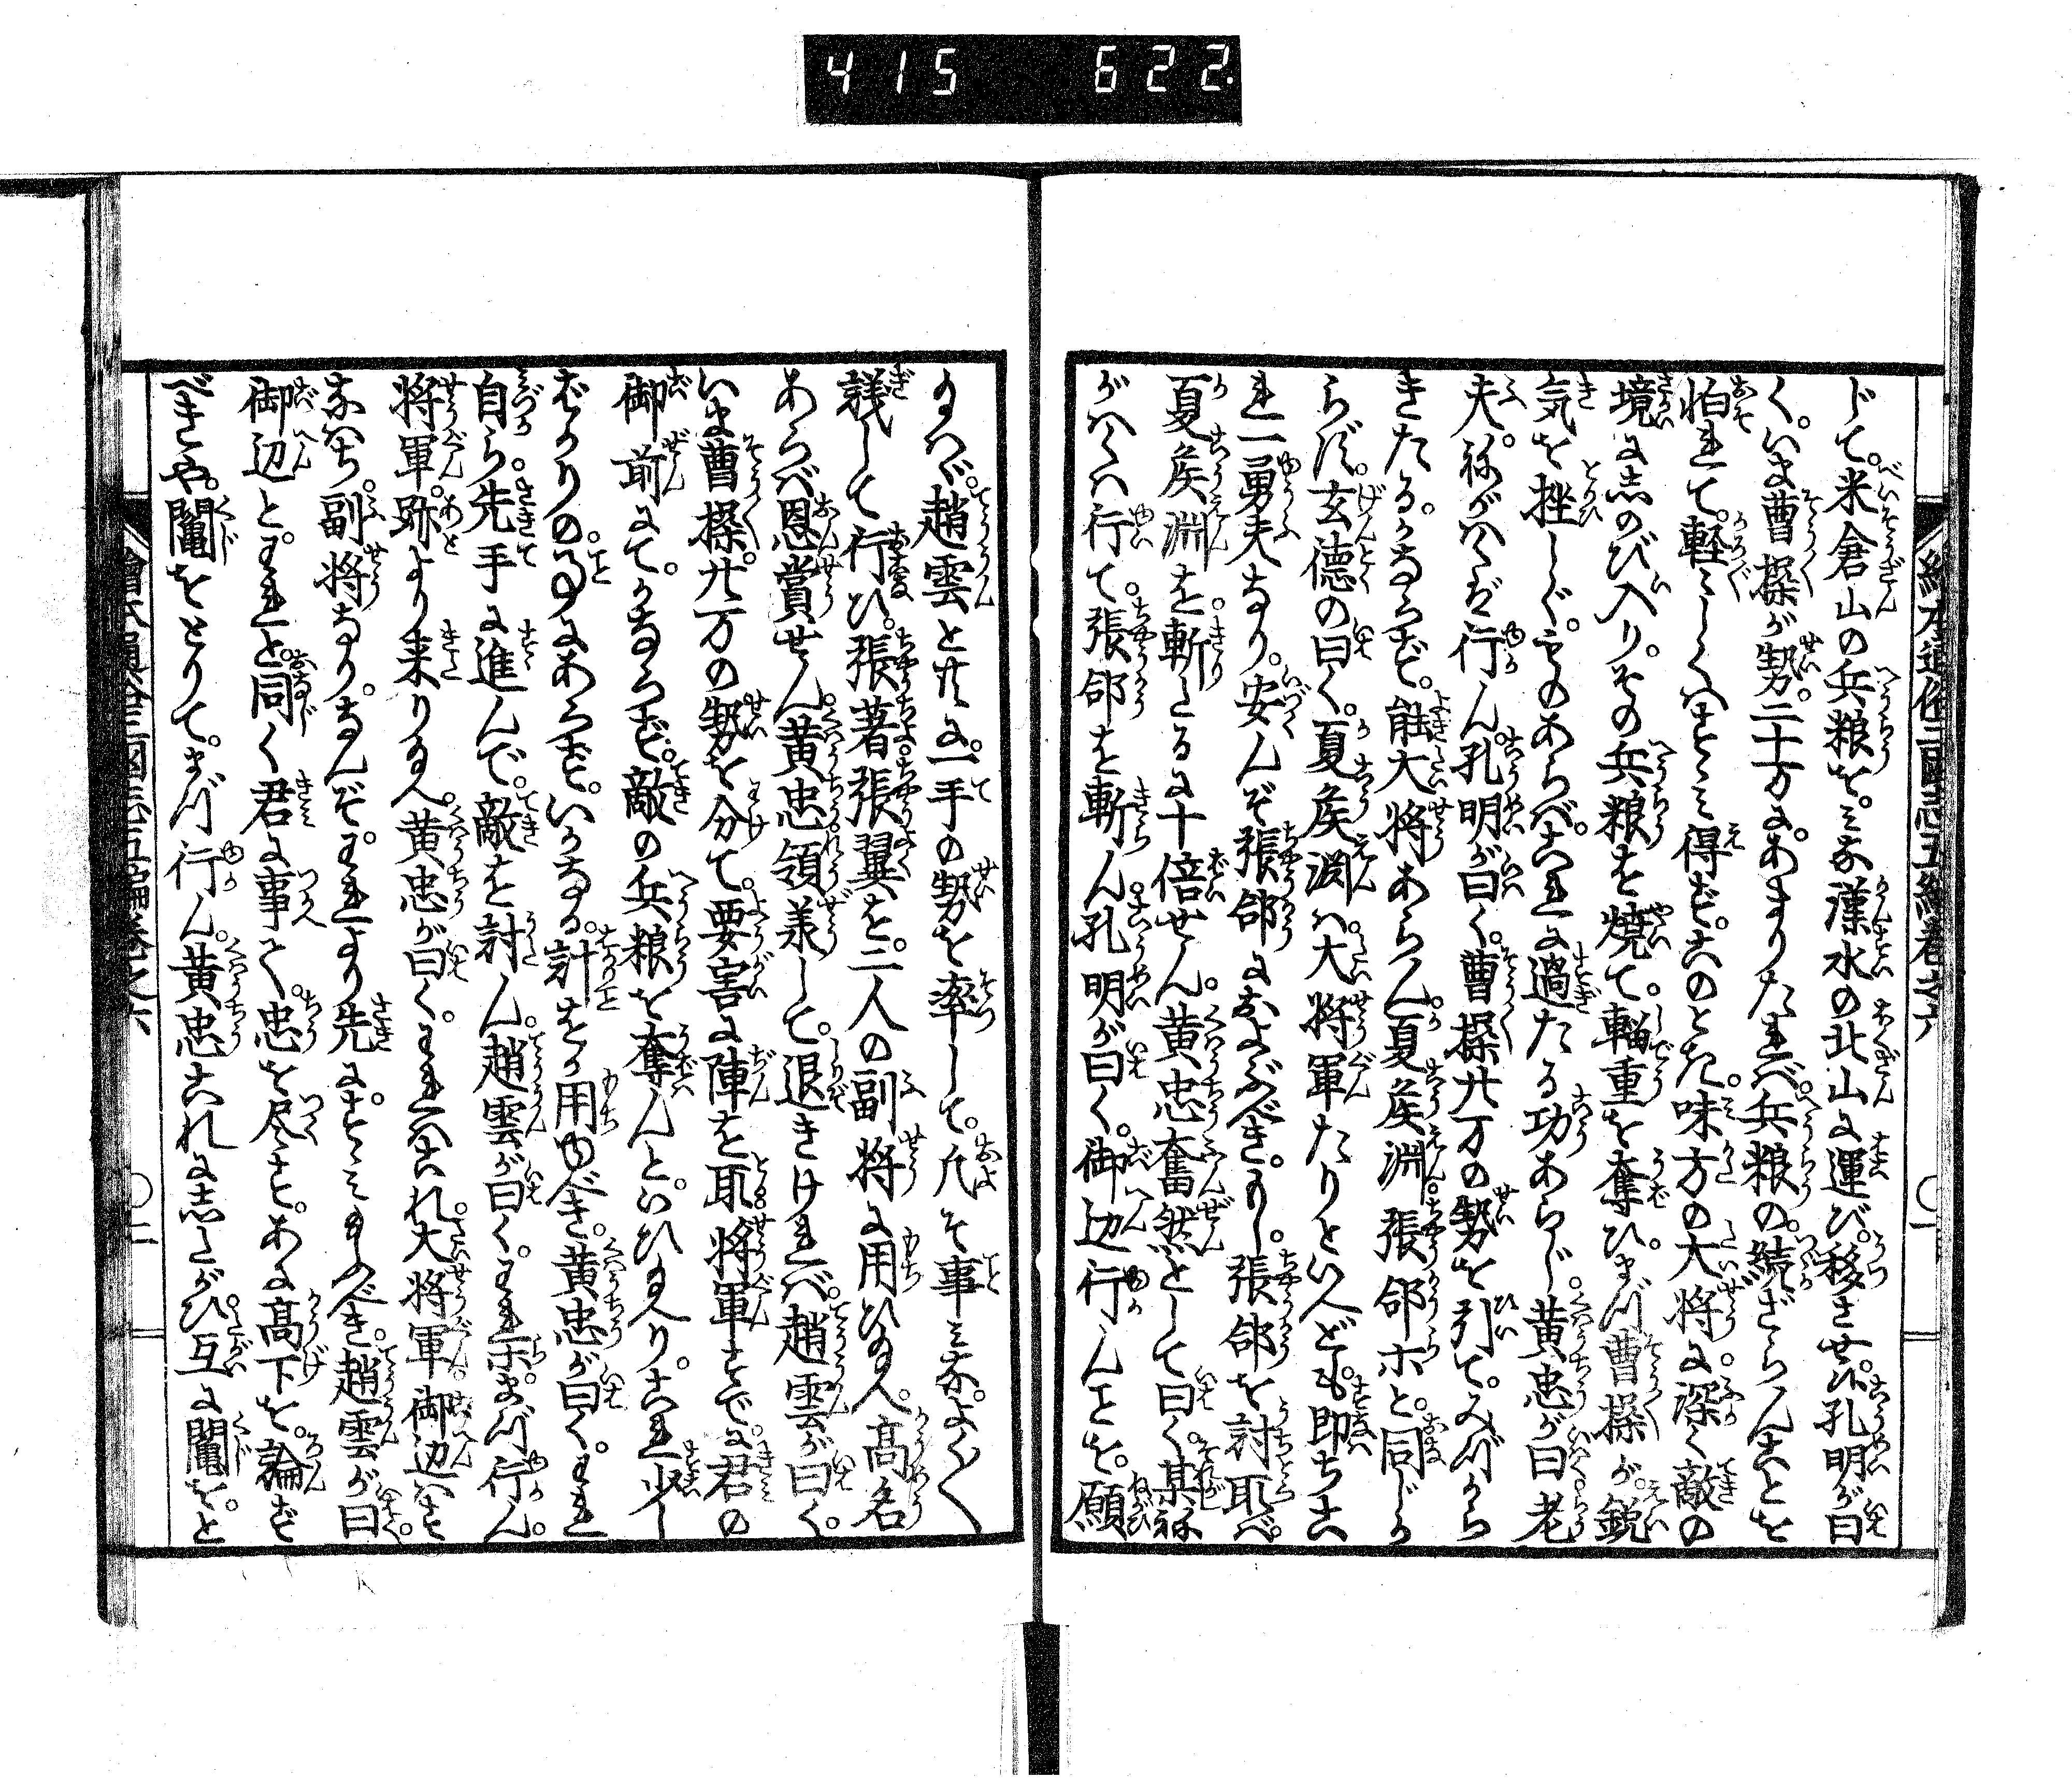 415 622
じて。米倉山の兵粮を。ミな漢水の北山に運び。移させ孔明が曰
く。いま曹操が勢。二十万に。あまりたれバ。兵粮の。続ざらんことを
怕れて。軽〻しくハすゝミ得ず。このとき。味方の大将に。深く敵の
境に忍び入り。その兵粮を焼て。輜重を奪ひ。まづ曹操が。鋭
気を挫しぐ。ものあらバ。これに過たる功あらじ。黄忠が曰老
夫。ねがハくバ行ん。孔明が曰く。曹操廿万の勢を引て。みづから
きたる。かならず。能大将あらん。夏侯淵張郃ホと。同じか
らず。玄徳の曰く。夏侯淵ハ。大将軍たりといへども。即ちこ
れ一勇夫なり。安んぞ張郃におよぶべき。もし。張郃を討取バ。
夏侯淵を。斬たるに十倍せん。黄忠奮然として曰く。某ね
がハくハ行て。張郃を斬ん。孔明が曰く。御辺行んとを。願
給へバ。趙雲とともに。一手の勢を率して。凡そ事ミな。よく〳〵
議して行ひ。張著張翼を。二人の副将に用ひ給へ。高名
あらバ恩賞せん。黄忠領承して。退きければ。趙雲が曰く。
いま曹操。廿万の勢を分て。要害に陣を取。将軍すでに君の
御前にて。かならず。敵の兵粮を奪んと。いひ給へり。これ少し
ばかりの。事にあらず。いかなる。計をか用ゆべき。黄忠が曰く。われ
自ら。先手に進んで。敵を討ん。趙雲が曰く。われ宗まづ行ん。
将軍。跡より来り給へ。黄忠が曰く。われハこれ。大将軍。御辺ハす
なハち。副将なり。なんぞ。われより先に。すゝミ給ふべき。趙雲が曰
御辺と。われと。同く君に事て。忠を尽セ。あに高下を。論ず
べきや。鬮をとりて。まづ行ん。黄忠これにしたがひ。互に鬮を。と